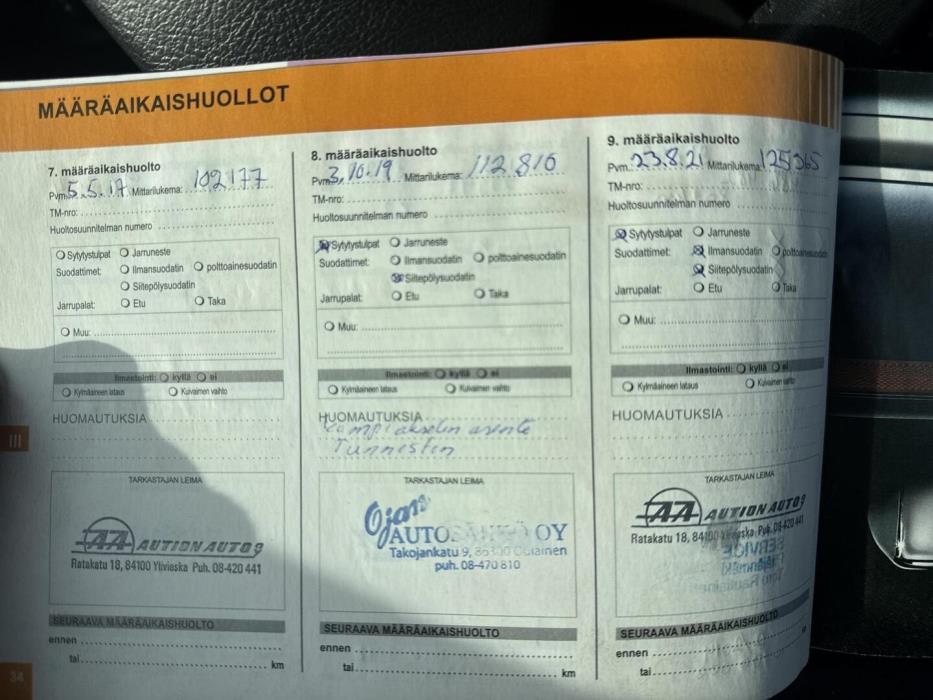 MÄÄRÄAIKAISHUOLLOT
7. määräaikaishuolto
Pvm. 5.5.17 Mittarilukema: 102177
TM-nro:
Huoltosuunnitelman numero
Sytytystulpat Jarruneste
Suodattimet: Ilmansuodatin polttoainesuodatin
Siitepölysuodatin
Jarrupalat: Etu Taka
Muu:
Ilmastointi: kyllä ei
Kylmäaineen lataus Kuivaimen vaihto
HUOMAUTUKSIA
TARKASTAJAN LEIMA
AA AUTION AUTO
Ratakatu 18, 84100 Ylivieska Puh. 08-420 441
SEURAAVA MÄÄRÄAIKAISHUOLTO
ennen
tai km
8. määräaikaishuolto
Pvm. 3.10.19 Mittarilukema: 112810
TM-nro:
Huoltosuunnitelman numero
Sytytystulpat Jarruneste
Suodattimet: Ilmansuodatin polttoainesuodatin
Siitepölysuodatin
Jarrupalat: Etu Taka
Muu:
Ilmastointi: kyllä ei
Kylmäaineen lataus Kuivaimen vaihto
HUOMAUTUKSIA
Kampiakselin asento
Tunnistin
TARKASTAJAN LEIMA
AUTOSÄHKÖ OY
Takojankatu 9, 86300 Oulainen
puh. 08-470 810
SEURAAVA MÄÄRÄAIKAISHUOLTO
ennen
tai km
9. määräaikaishuolto
Pvm. 23.8.21 Mittarilukema: 125365
TM-nro:
Huoltosuunnitelman numero
Sytytystulpat Jarruneste
Suodattimet: Ilmansuodatin polttoainesuodatin
Siitepölysuodatin
Jarrupalat: Etu Taka
Muu:
Ilmastointi: kyllä ei
Kylmäaineen lataus Kuivaimen vaihto
HUOMAUTUKSIA
TARKASTAJAN LEIMA
AA AUTION AUTO
Ratakatu 18, 84100 Ylivieska Puh. 08-420 441
SEURAAVA MÄÄRÄAIKAISHUOLTO
ennen
tai
III
34